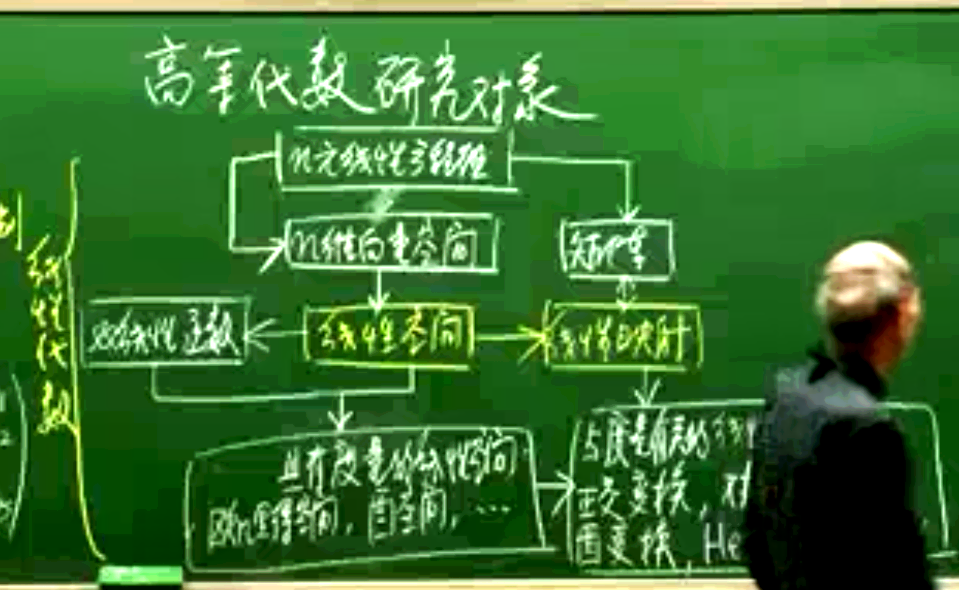 高等代数研究对象
n元线性方程组
n维向量空间
矩阵
线性代数
双线性函数
线性空间
线性映射
具有度量的线性空间
欧几里得空间,酉空间,…
与度量有关的线
正交变换,对
酉变换,He